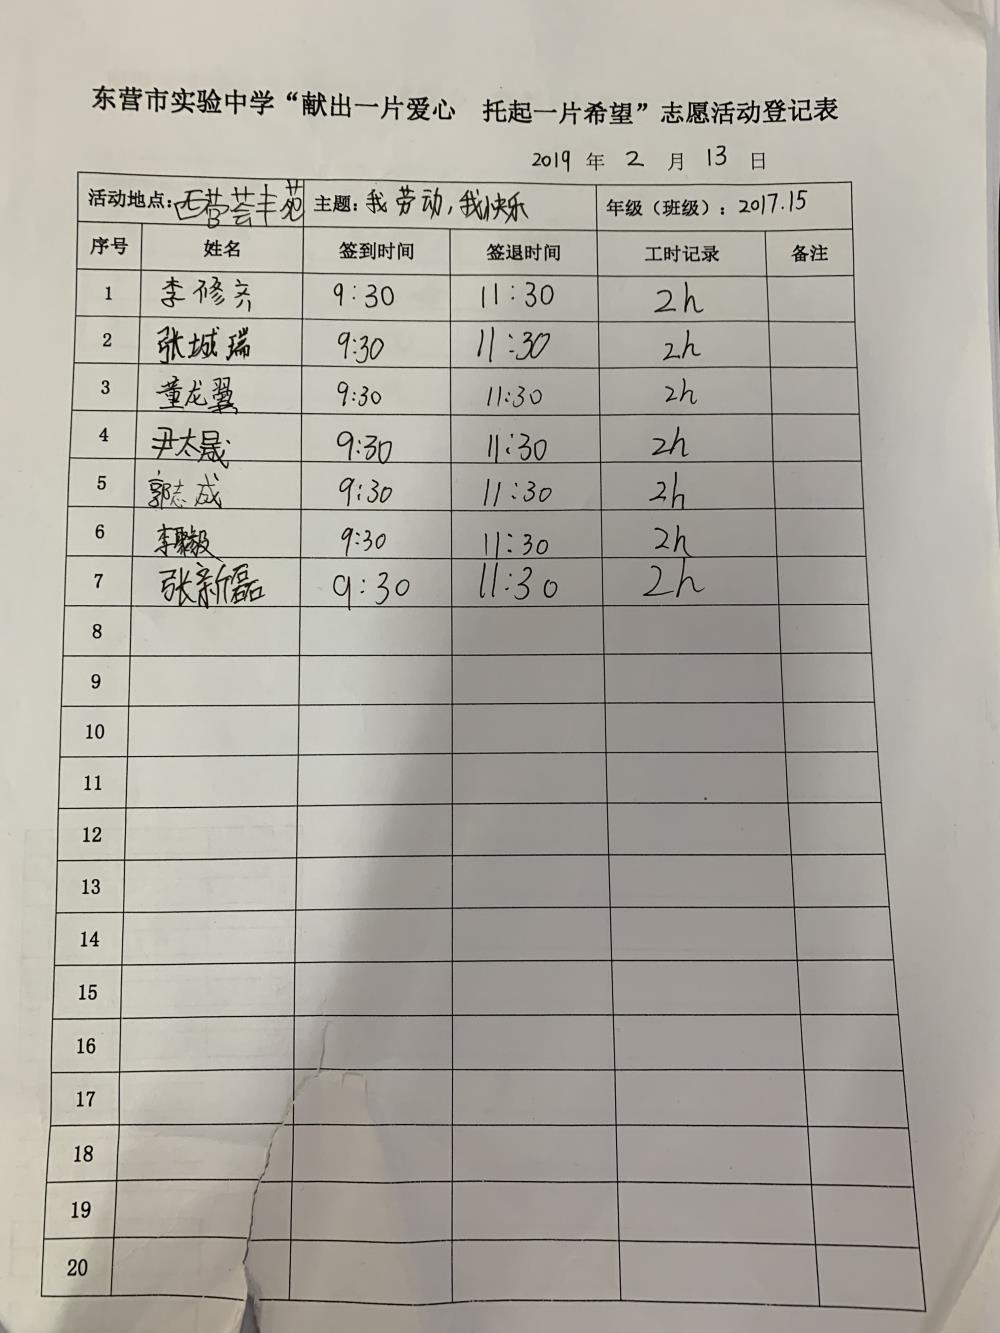 东营市实验中学“献出一片爱心 托起一片希望”志愿活动登记表
2019 年 2 月 13 日
活动地点：西营荟丰苑 主题：我劳动，我快乐 年级（班级）：2017.15
序号 姓名 签到时间 签退时间 工时记录 备注
1 李修齐 9:30 11:30 2h
2 张城瑞 9:30 11:30 2h
3 董龙翼 9:30 11:30 2h
4 尹太晟 9:30 11:30 2h
5 郭志成 9:30 11:30 2h
6 李聚毅 9:30 11:30 2h
7 张新磊 9:30 11:30 2h
8
9
10
11
12
13
14
15
16
17
18
19
20